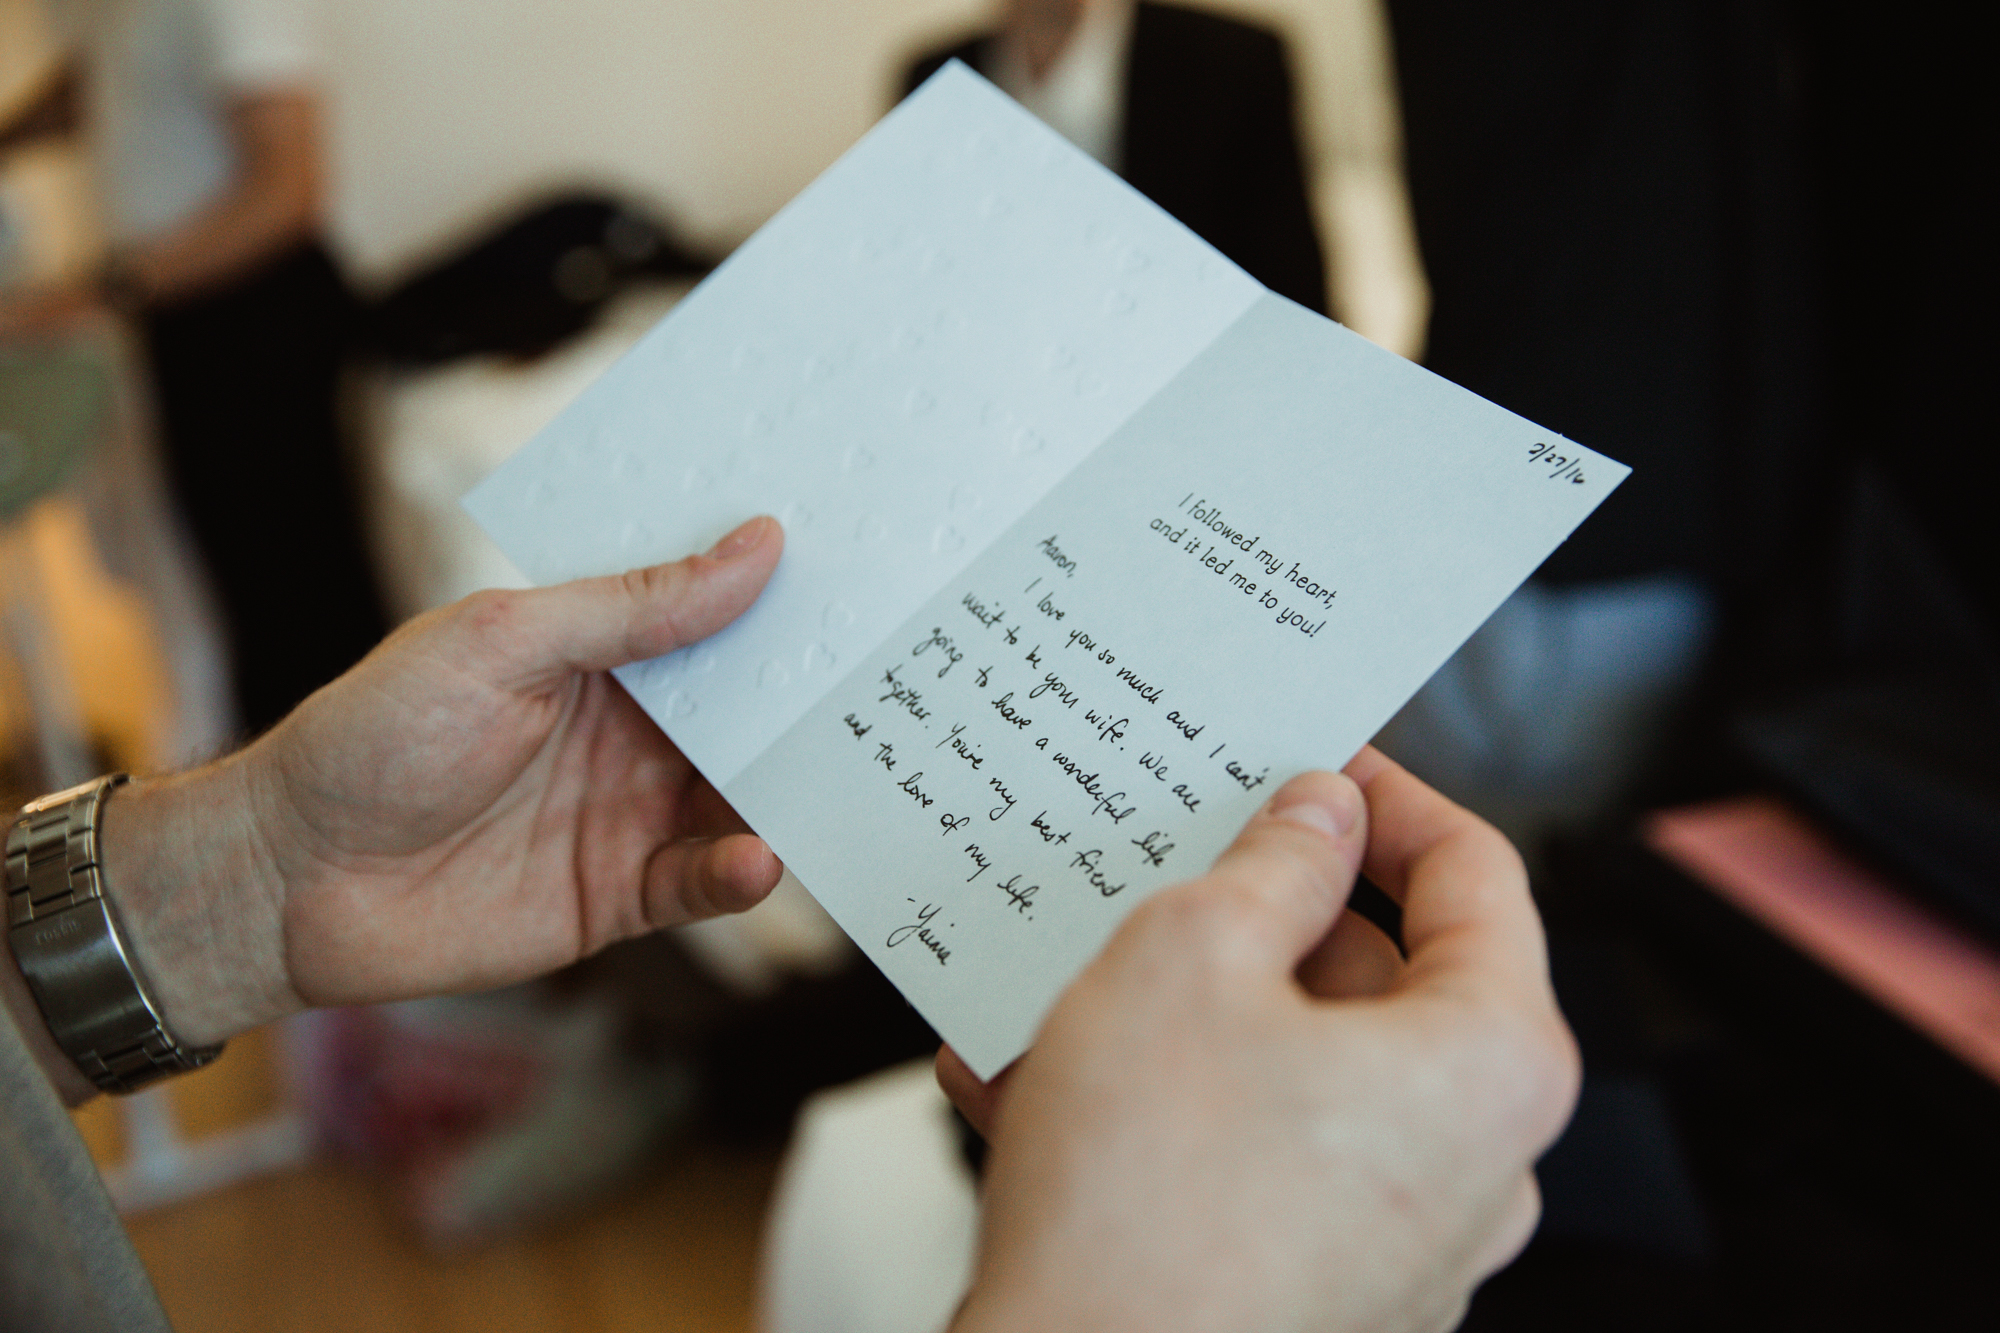 2/27/16
I followed my heart,
and it led me to you!
Aaron,
I love you so much and I can't
wait to be your wife. We are
going to have a wonderful life
together. You're my best friend
and the love of my life.
-Yaima
FOSSIL